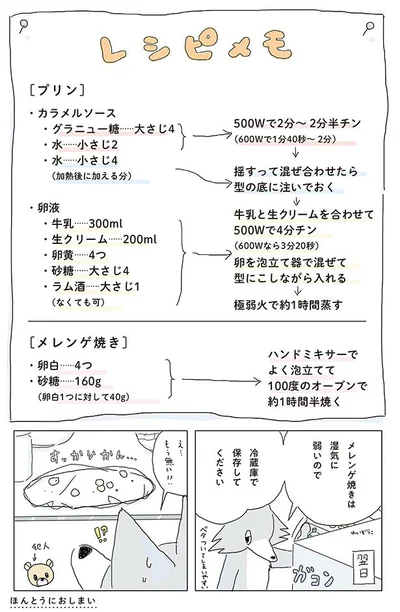 レシピメモ
[プリン]
・カラメルソース
・グラニュー糖……大さじ4
・水……小さじ2
・水……小さじ4
(加熱後に加える分)
500Wで2分〜2分半チン
(600Wで1分40秒〜2分)
揺すって混ぜ合わせたら
型の底に注いでおく
・卵液
・牛乳……300ml
・生クリーム……200ml
・卵黄……4つ
・砂糖……大さじ4
・ラム酒……大さじ1
(なくても可)
牛乳と生クリームを合わせて
500Wで4分チン
(600Wなら3分20秒)
卵を泡立て器で混ぜて
型にこしながら入れる
極弱火で約1時間蒸す
[メレンゲ焼き]
・卵白……4つ
・砂糖……160g
(卵白1つに対して40g)
ハンドミキサーで
よく泡立てて
100度のオーブンで
約1時間半焼く
翌日
ガコン
れいぞうこ
メレンゲ焼きは
湿気に
弱いので
冷蔵庫で
保存して
ください
ベタついてしまいやすい
え…
もう無い!?
すっからかん…
!?
犯人
ほんとうにおしまい